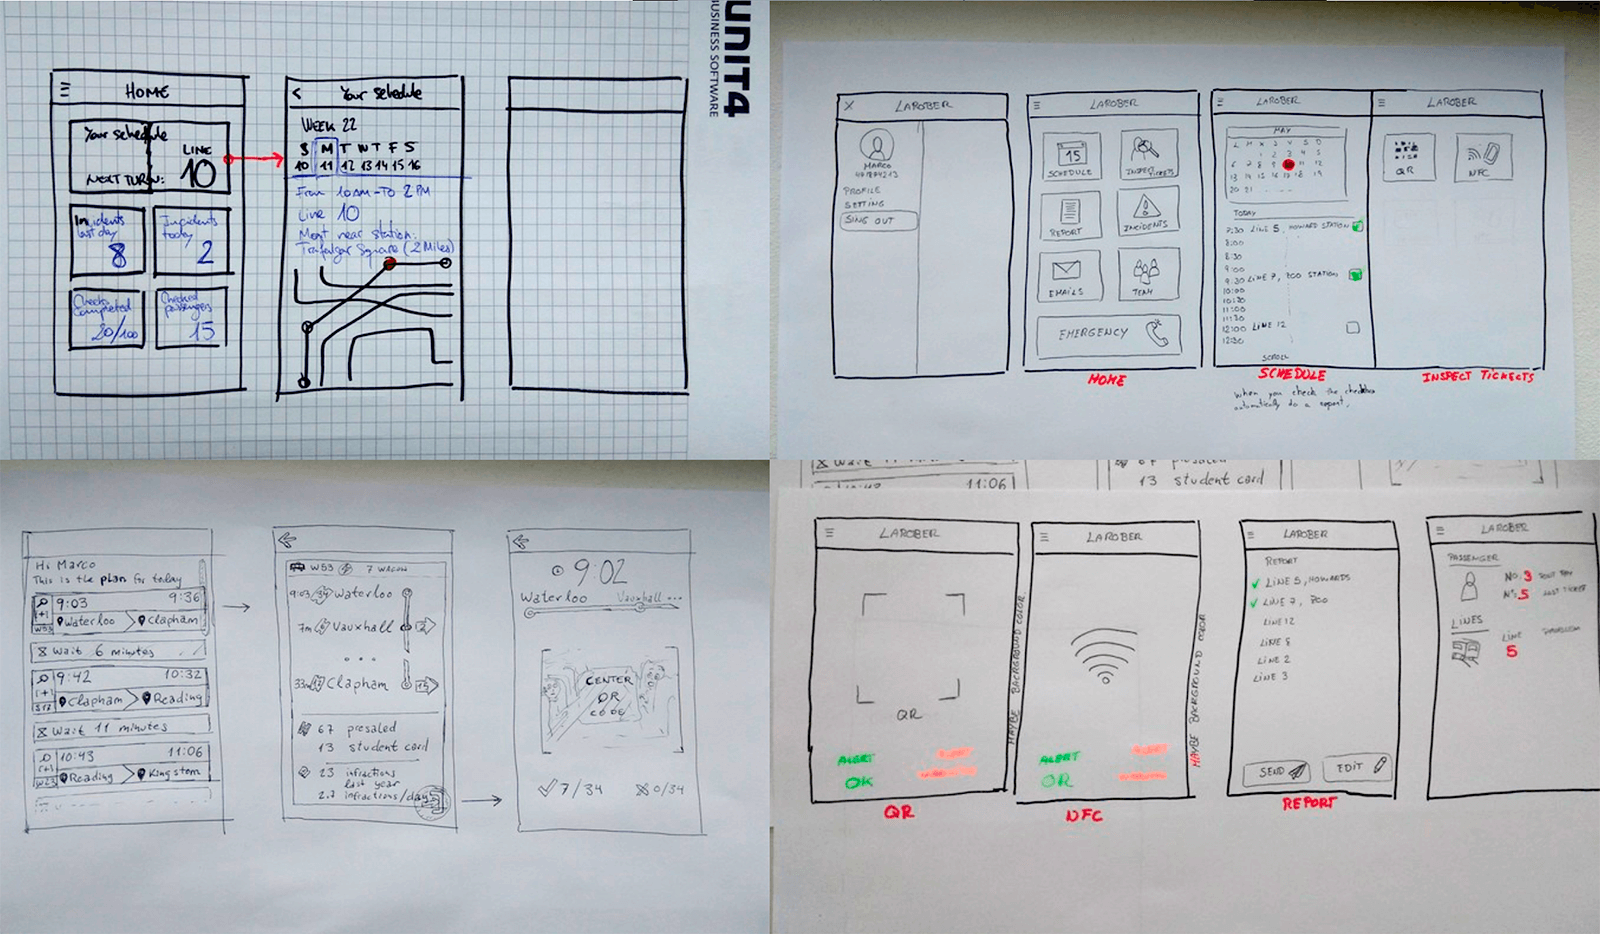 UNIT4
BUSINESS SOFTWARE
HOME
Your schedule
LINE
10
NEXT TURN:
Incidents
last day
8
Incidents
today
2
Checks
completed
20/100
Checked
passengers
15
Your schedule
WEEK 22
S M T W T F S
10 11 12 13 14 15 16
From 10 AM - TO 2 PM
Line 10
Most near station:
Trafalgar Square (2 Miles)
LAROBER
MARCO
PROFILE
SETTING
SING OUT
LAROBER
15
SCHEDULE
INSPECT TICKETS
REPORT
INCIDENTS
EMAILS
TEAM
EMERGENCY
HOME
LAROBER
MAY
L M X J V S D
1 2 3 4 5
6 7 8 9 11 12
13 14 15 16 17 18 19
20 21
TODAY
7:30 LINE 5, HOWARD STATION
8:00
8:30
9:00
9:30 LINE 7, 700 STATION
10:00
10:30
11:00
11:30
12:00 LINE 12
12:30
SCROLL
SCHEDULE
When you check the checkbox
automatically do a report.
LAROBER
QR
NFC
INSPECT TICKETS
Hi Marco
This is the plan for today
9:03 9:36
Waterloo Clapham
W53
Wait 6 minutes
9:42 10:32
Clapham Reading
S12
Wait 11 minutes
10:43 11:06
Reading Kingston
W23
W53 7 WAGON
9:03 Waterloo
7m Vauxhall 2
...
33m Clapham 15
67 presaled
13 student card
23 infractions
last year
2.7 infractions/day
9:02
Waterloo Vauxhall ...
CENTER
QR
CODE
7/34 0/34
Wait
11:06
67 presaled
13 student card
LAROBER
QR
ALERT
OK
ALERT
MAYBE BACKGROUND COLOR
QR
LAROBER
ALERT
OK
ALERT
MAYBE BACKGROUND COLOR
NFC
LAROBER
REPORT
LINE 5, HOWARDS
LINE 7, 700
LINE 12
LINE 8
LINE 2
LINE 3
SEND
EDIT
REPORT
LAROBER
PASSENGER
No. 3 DONT PAY
No. 5 LOST TICKET
LINES
LINE
5